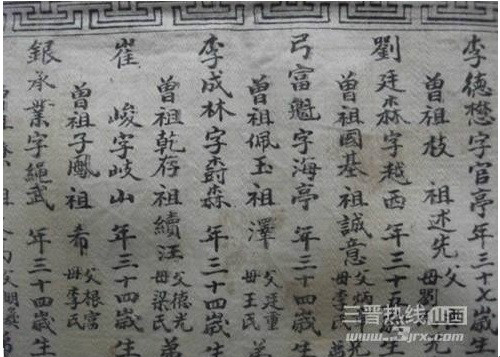 李德懋字官亭 年三十七歲生
曾祖枝 祖述先 父酉 母劉
劉廷森字越西 年三十五歲生
曾祖國基 祖誠意 父炳 母李氏
弓富魁字海亭 年三十四歲生
曾祖佩玉 祖澤 父廷重 母王氏
李成林字森 年三十四歲生
曾祖乾存 祖續汪 父德光 母梁氏
崔峻字岐山 年三十四歲生
曾祖子鳳 祖希 父根富 母李氏
銀承業字繩武 年三十四歲生
三晋热线山西